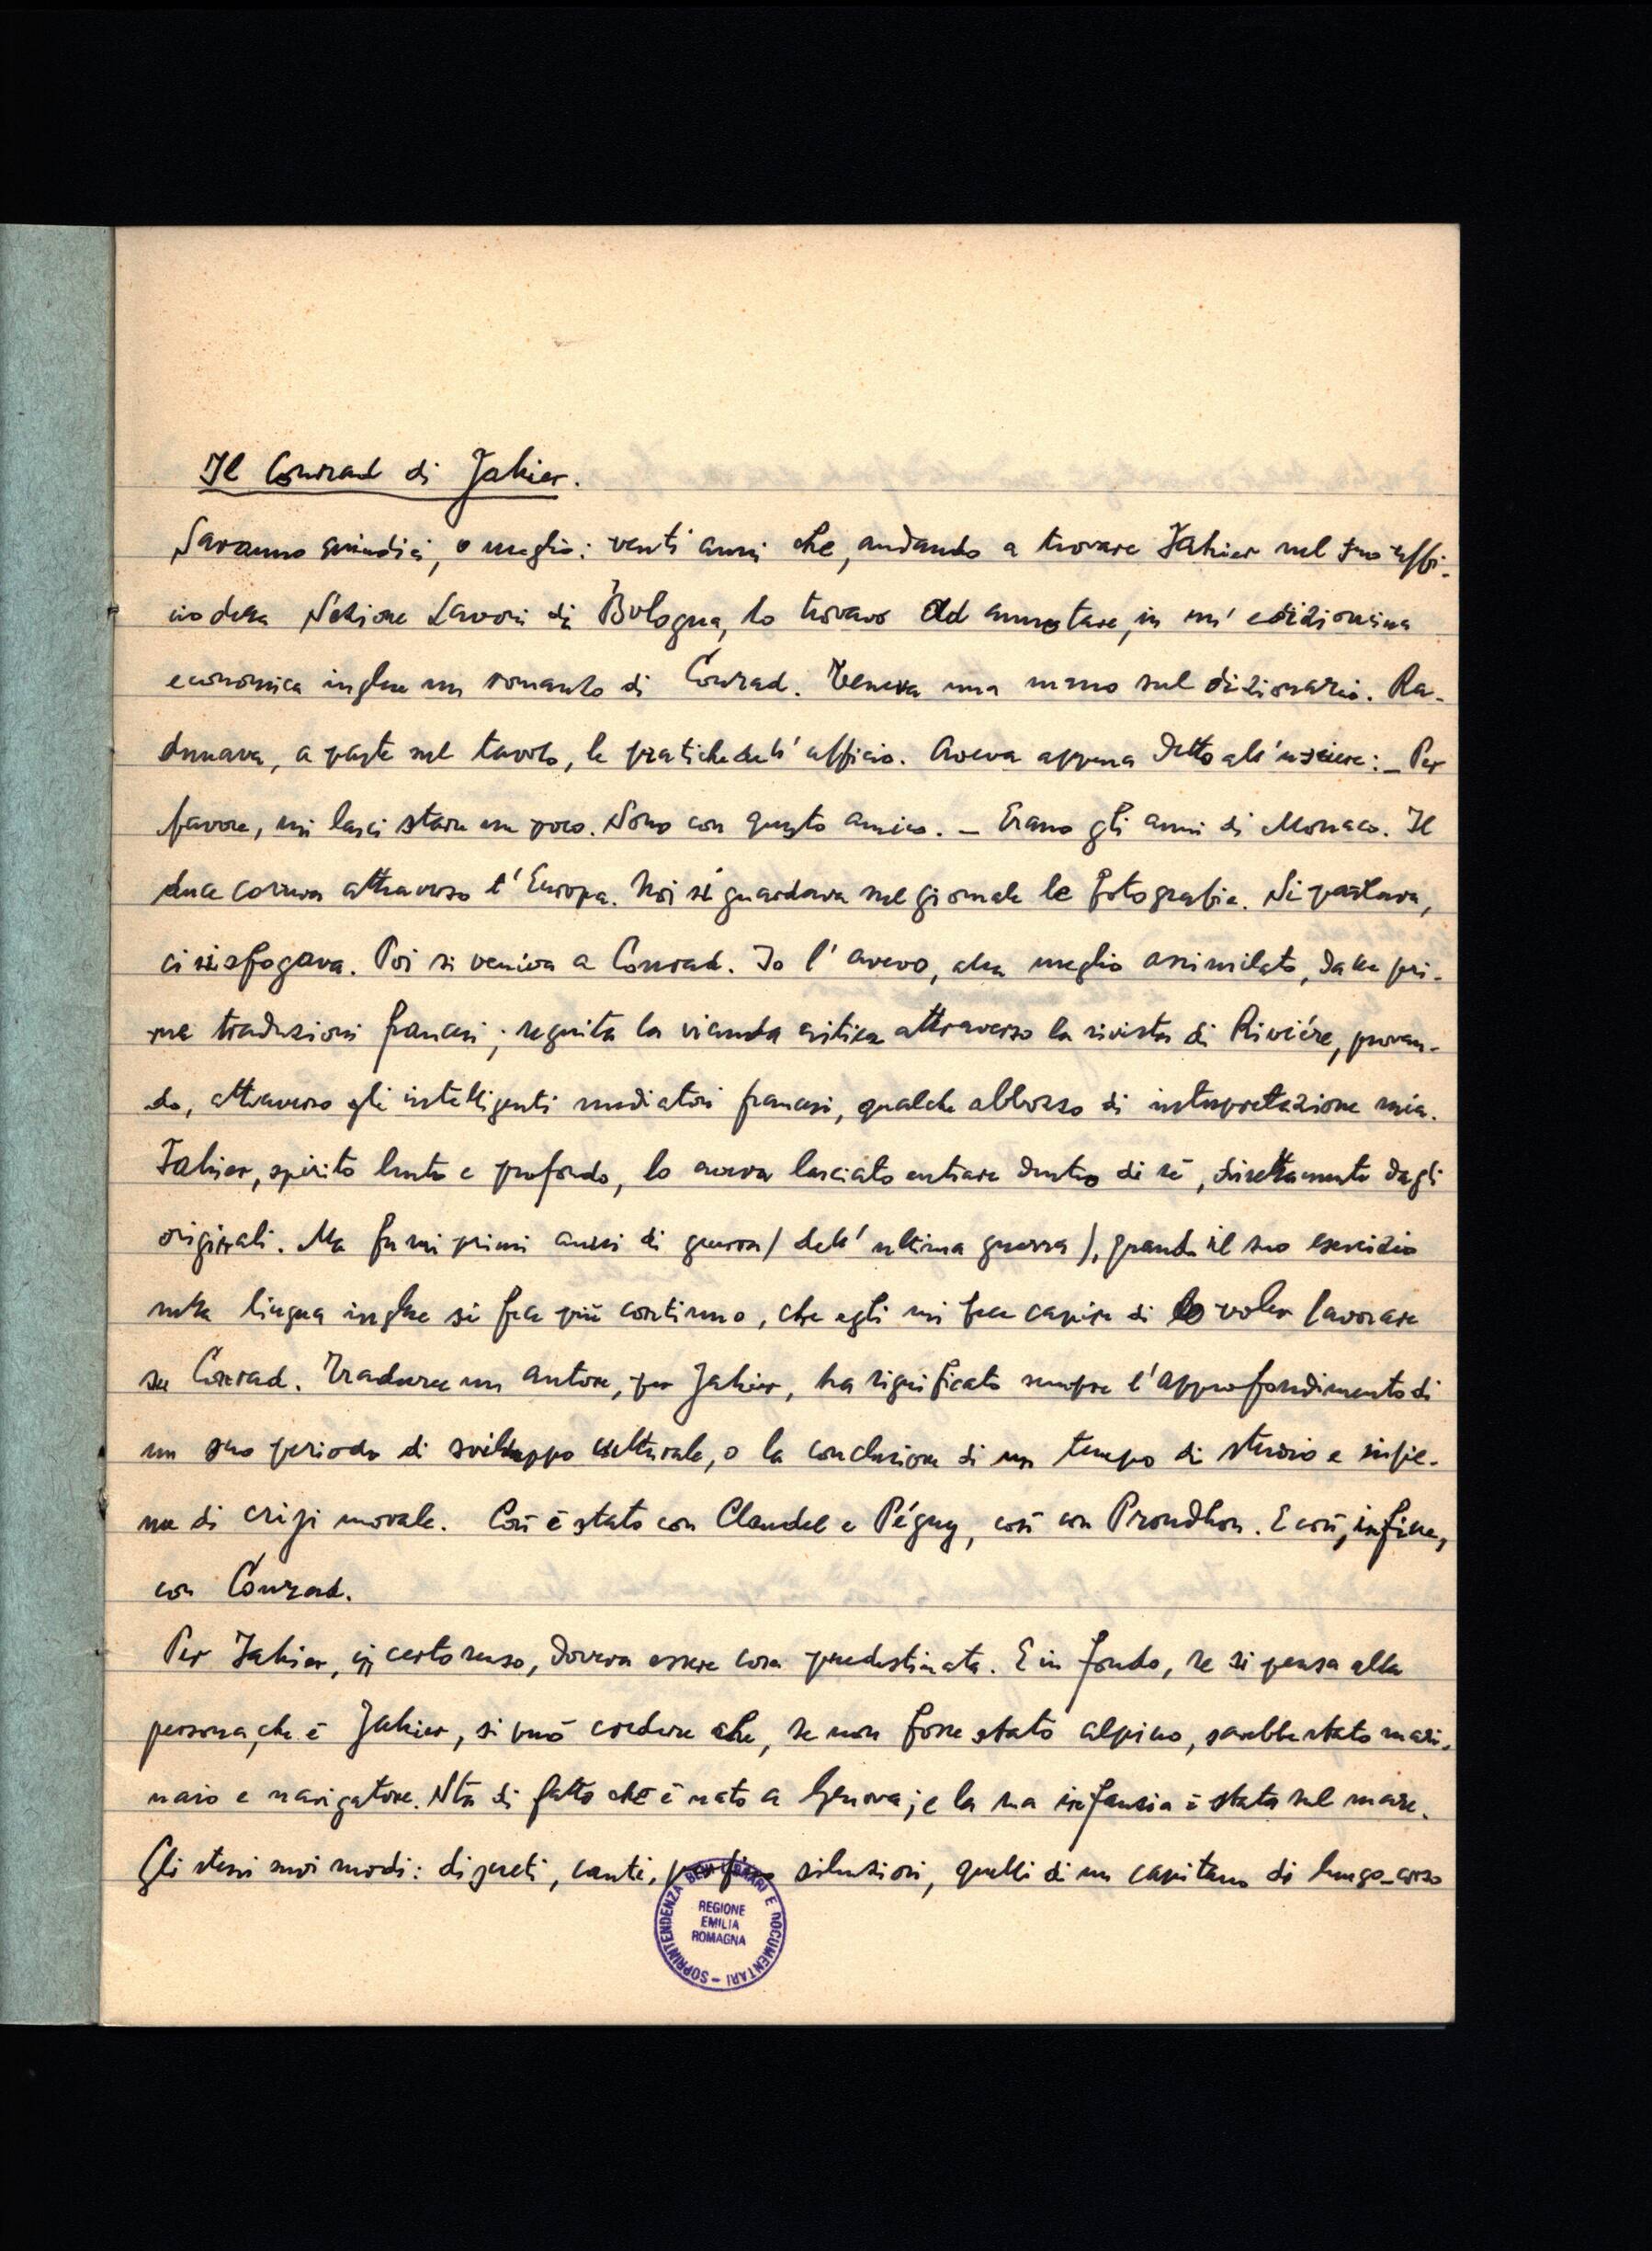 Il Conrad di Jahier.
Saranno quindici, o meglio: venti anni che, andando a trovare Jahier nel suo uffi-
cio della Sezione Lavori di Bologna, lo trovavo ad annotare, in un' edizioncina
economica inglese un romanzo di Conrad. Teneva una mano sul dizionario. Ra-
dunava, a parte sul tavolo, le pratiche dell' ufficio. Aveva appena detto all' usciere: – Per
favore, mi lasci stare un poco. Sono con questo amico. – Erano gli anni di Monaco. Il
duce correva attraverso l' Europa. Noi si guardava sul giornale le fotografie. Si parlava,
ci si sfogava. Poi si veniva a Conrad. Io l' avevo, alla meglio assimilato, dalle pri-
me traduzioni francesi; seguita la vicenda critica attraverso la rivista di Riviére, provan-
do, attraverso gli intelligenti mediatori francesi, qualche abbozzo di interpretazione mia.
Jahier, spirito lento e profondo, lo aveva lasciato entrare dentro di sé, direttamente dagli
originali. Ma fu nei primi anni di guerra (dell' ultima guerra), quando il suo esercizio
nella lingua inglese si fece più continuo, che egli mi fece capire di voler lavorare
su Conrad. Tradurre un autore, per Jahier, ha significato sempre l' approfondimento di
un suo periodo di sviluppo culturale, o la conclusione di un tempo di studio e insie-
me di crisi morale. Così è stato con Claudel e Péguy, così con Proudhon. E così, infine,
con Conrad.
Per Jahier, in certo senso, doveva essere cosa predestinata. E in fondo, se si pensa alla
persona, che è Jahier, si può credere che, se non fosse stato alpino, sarebbe stato mari-
naio e navigatore. Sta di fatto che è nato a Genova; e la sua infanzia è stata sul mare.
Gli stessi suoi modi: discreti, cauti, perfino silenziosi, quelli di un capitano di lungo-corso
SOPRINTENDENZA BENI LIBRARI E DOCUMENTARI –
REGIONE
EMILIA
ROMAGNA